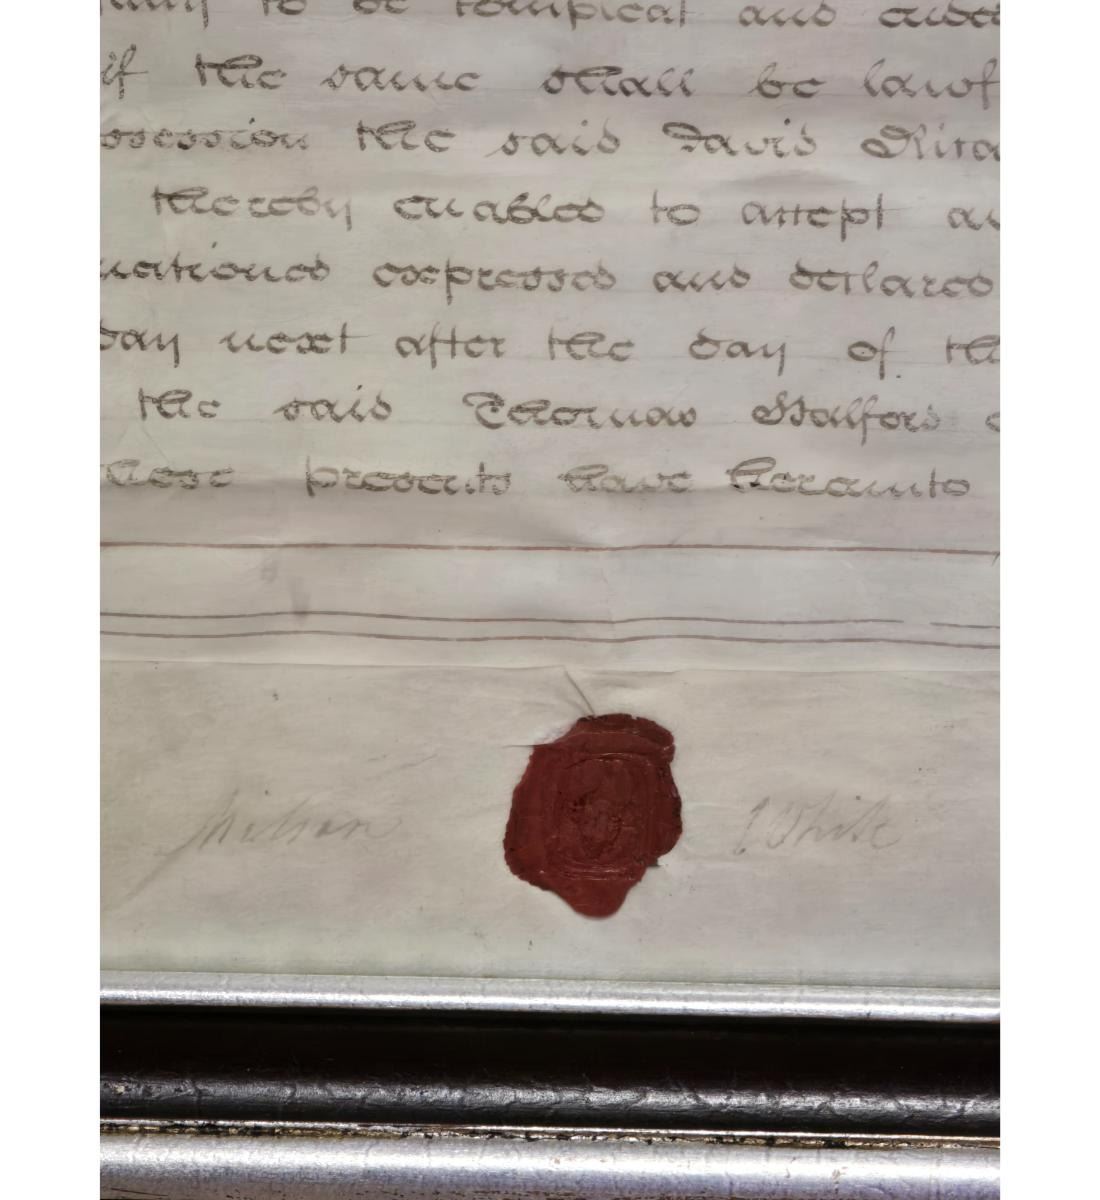 to be compleat and
if the same shall be lawf
ssession the said David Rica
thereby enabled to accept a
uationed expressed and declared
day next after the day of th
the said Thomas Halford
these presents have hereunto
White